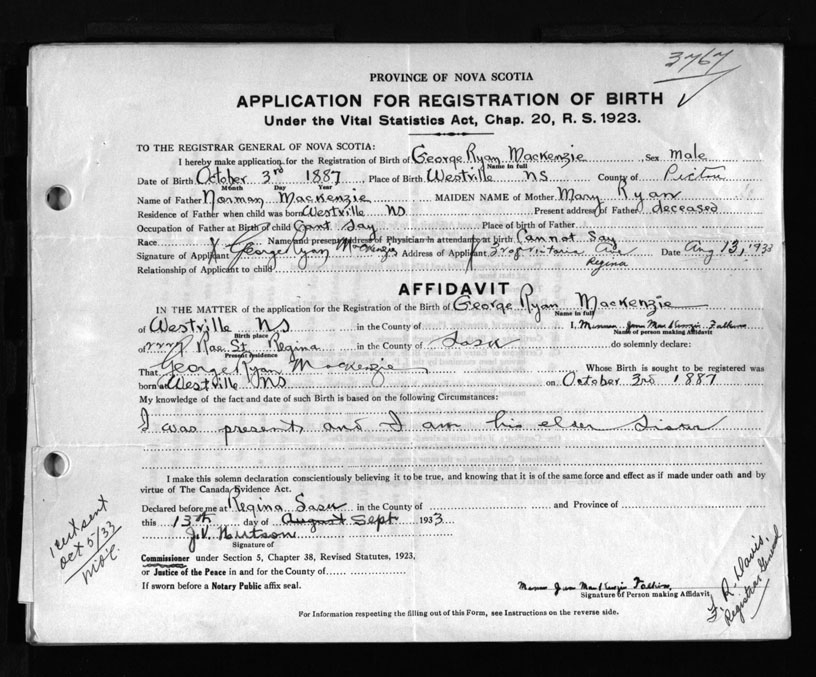 3767
PROVINCE OF NOVA SCOTIA
APPLICATION FOR REGISTRATION OF BIRTH
Under the Vital Statistics Act, Chap. 20, R. S. 1923.
TO THE REGISTRAR GENERAL OF NOVA SCOTIA:
I hereby make application for the Registration of Birth of George Ryan MacKenzie, Sex Male
Name in full
Date of Birth October 3rd 1887, Place of Birth Westville NS County of Pictou
Month Day Year
Name of Father Norman MacKenzie MAIDEN NAME of Mother Mary Ryan
Residence of Father when child was born Westville NS Present address of Father deceased
Occupation of Father at Birth of child Cant Say Place of birth of Father
Race Name and present address of Physician in attendance at birth Cannot Say
Signature of Applicant George Ryan MacKenzie Address of Applicant Ave Regina Date Aug 13, 1933
Relationship of Applicant to child
AFFIDAVIT
IN THE MATTER of the application for the Registration of the Birth of George Ryan MacKenzie
Name in full
of Westville NS in the County of I, Jane MacKenzie
Birth place Name of person making Affidavit
of Rae St Regina in the County of Sask do solemnly declare:
Present residence
That George Ryan MacKenzie Whose Birth is sought to be registered was
born at Westville NS on October 3rd 1887
My knowledge of the fact and date of such Birth is based on the following Circumstances:
I was present and I am his elder Sister
I make this solemn declaration conscientiously believing it to be true, and knowing that it is of the same force and effect as if made under oath and by
virtue of The Canada Evidence Act.
Declared before me at Regina Sask in the County of and Province of
this 13th day of August Sept 1933
J.V.
Signature of
Commissioner under Section 5, Chapter 38, Revised Statutes, 1923,
or Justice of the Peace in and for the County of
If sworn before a Notary Public affix seal.
Jane MacKenzie
Signature of Person making Affidavit
For Information respecting the filling out of this Form, see Instructions on the reverse side.
1 cert sent
Oct 5/33
F. R. Davis,
Registrar General